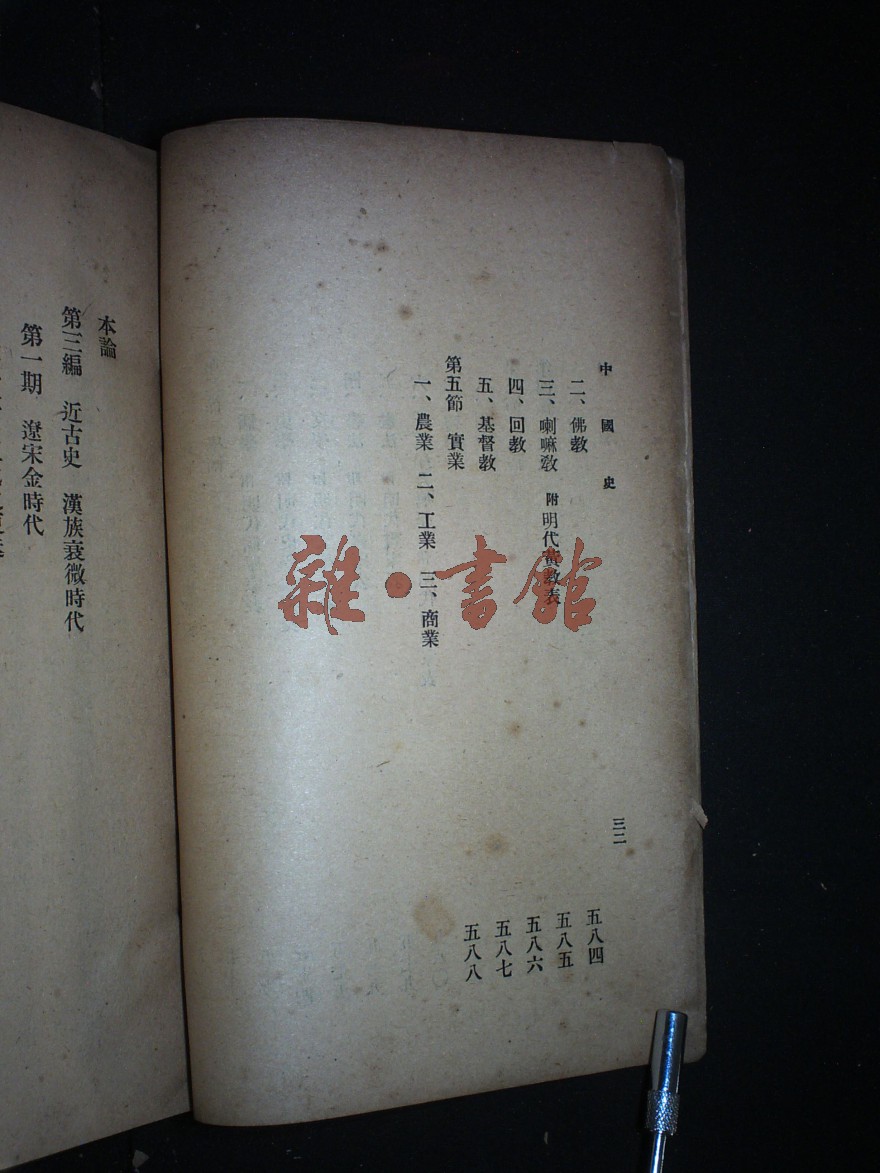 中國史
三二
二、佛教 五八四
三、喇嘛敎 附明代黃敎表 五八五
四、回教 五八六
五、基督教 五八七
第五節 實業 五八八
一、農業 二、工業 三、商業
本論
第三編 近古史 漢族衰微時代
第一期 遼宋金時代
雜·書館